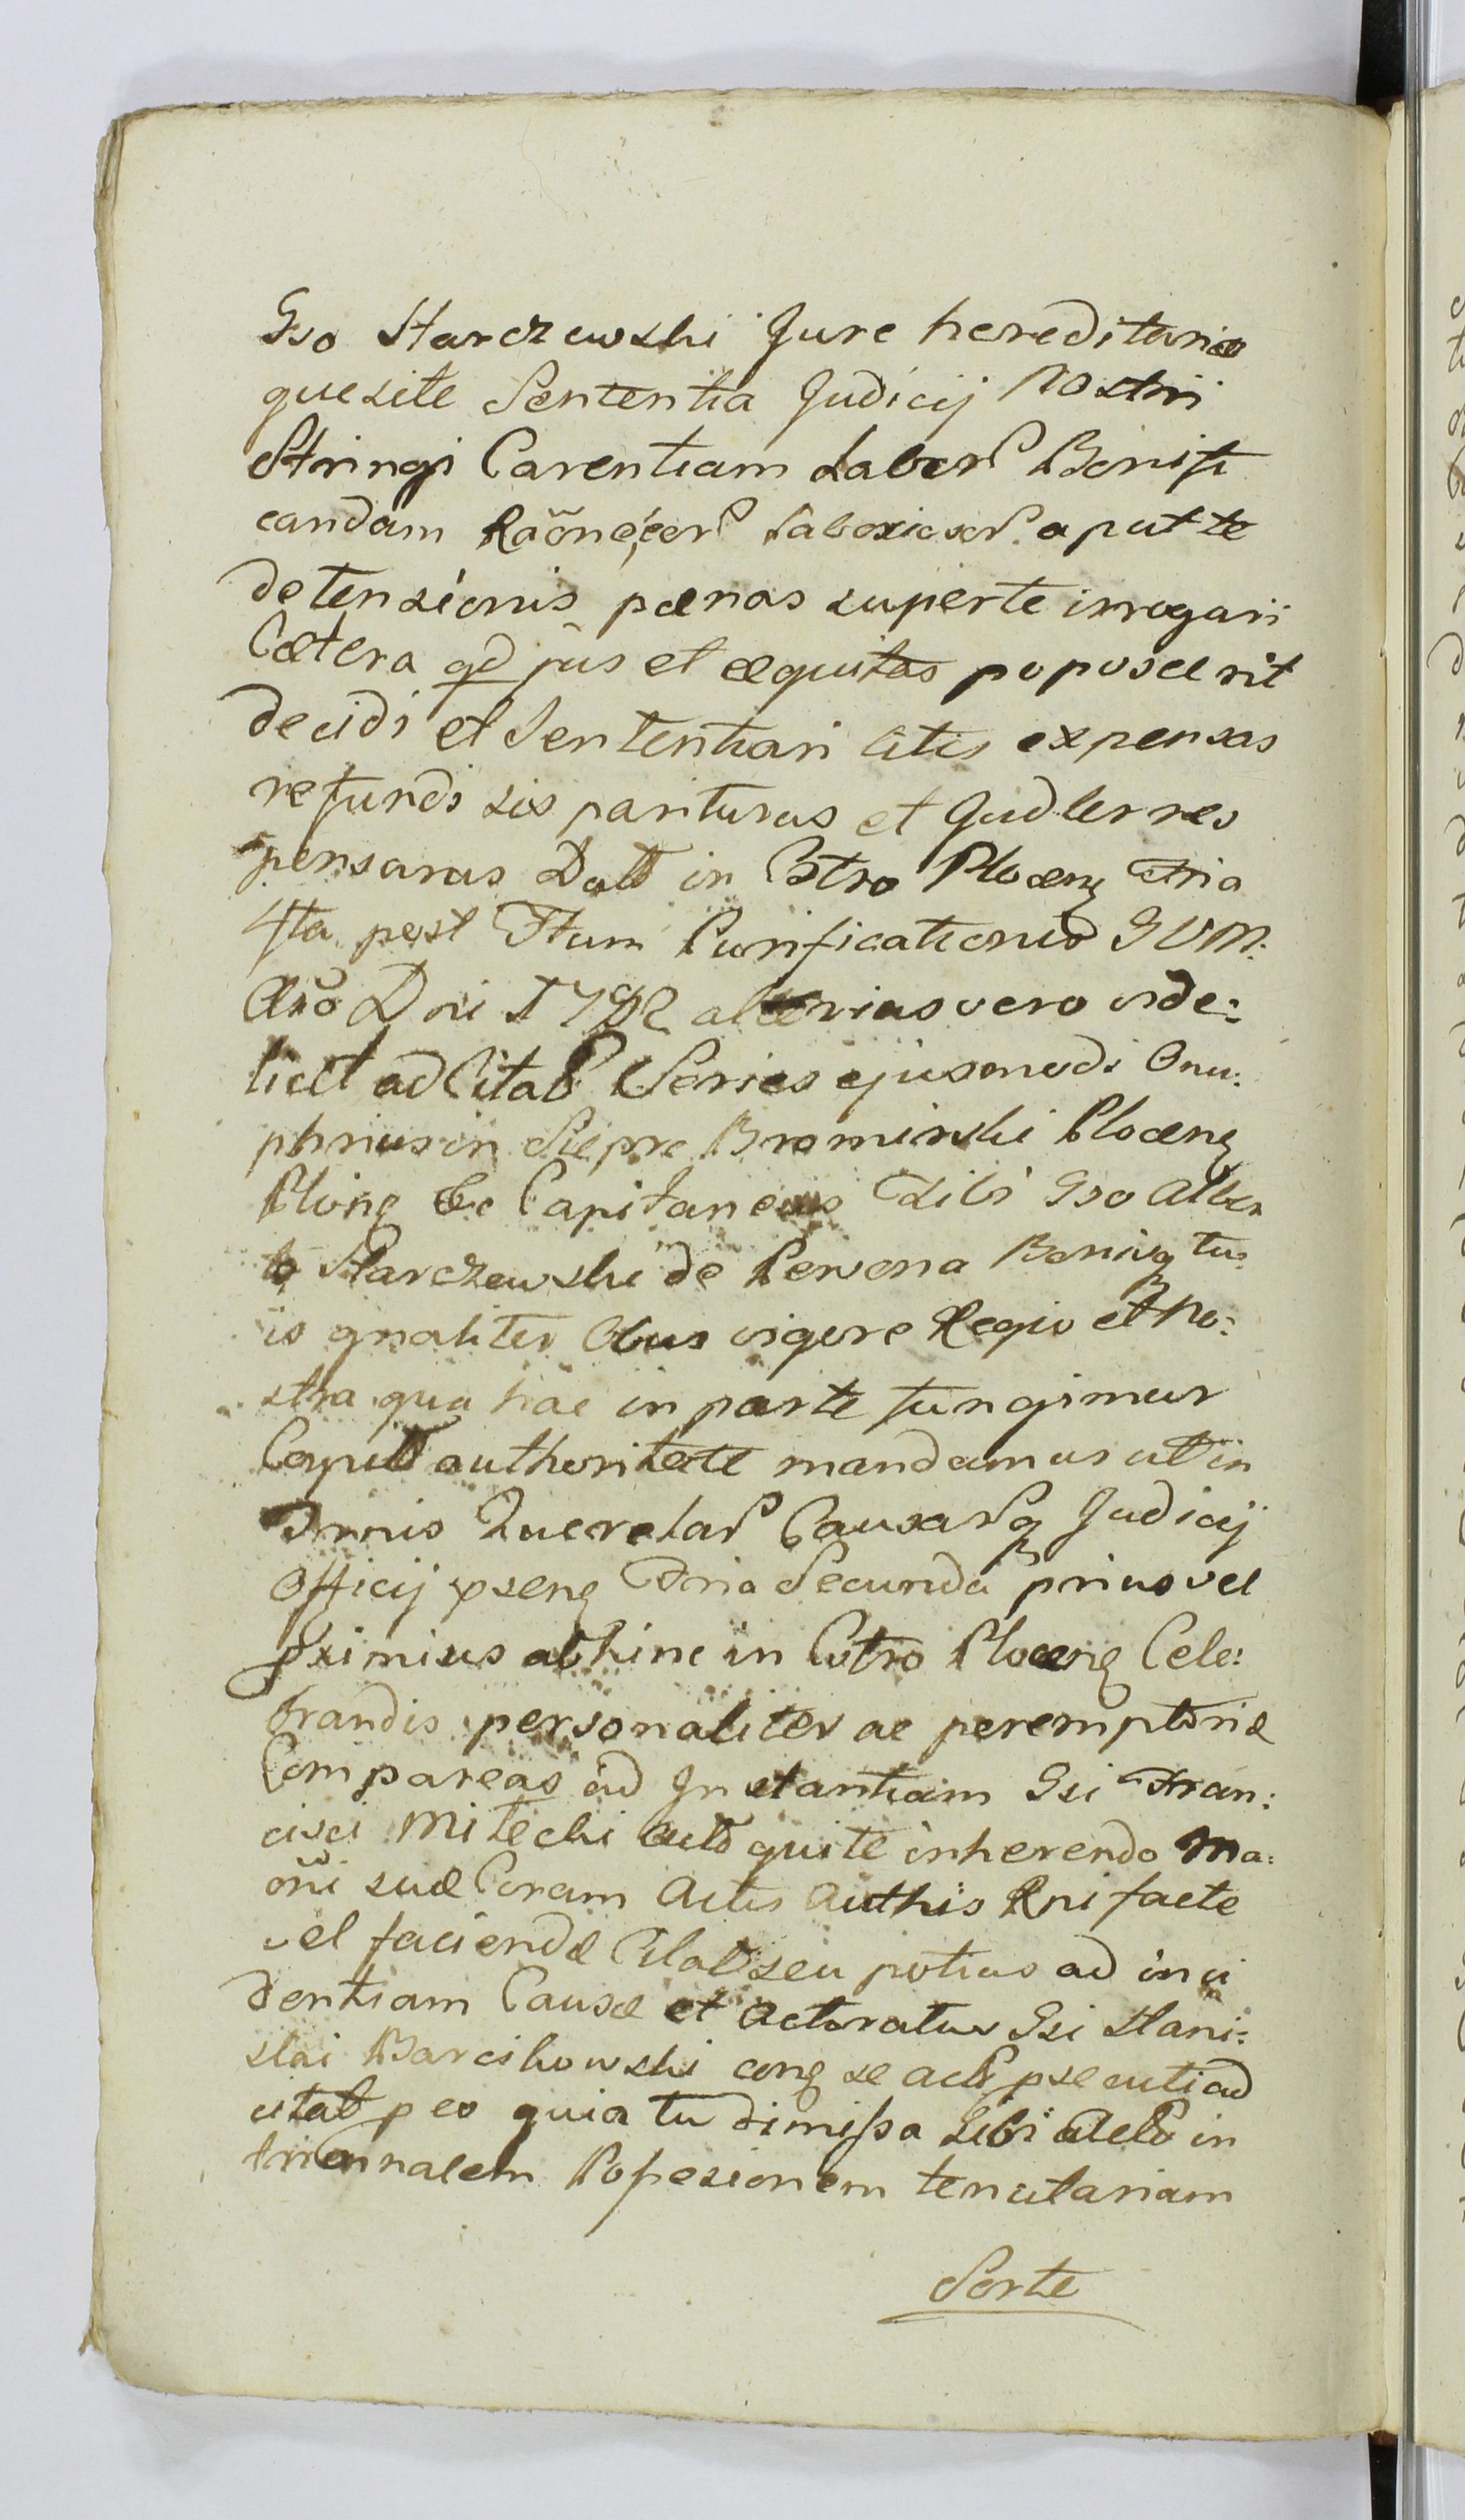 Gso Starczewski Jure hereditariæ
quesite Sententia Judicij Nostri
Stringi Carentiam Labor Bonifi
candam Raõne labor a put te
detensionis pænas superte irrogari
Cætera qd jus et æquitas poposcerit
decidi et Sententiari litis expensas
refundi sis pariturus et Judlerres
pensurus Datt in Cstro Plocen Fria
4ta post Ftum Purificationis BVM:
Año Dni 1792 alterius vero vide:
licet ad Citat Series ejusmodi Onu:
phrius in Siepre Bromirski Plocen
Plōnę &c Capitaneus Tibi Gso Alber
to Starczewski de Persona Bonisq tu:
is gnaliter Obus vigore Regio et No:
stra qua hac in parte fungimur
Caputt authoritate mandamus ut in
Trmis Querelar Causarq Judicij
Officij pseng Fria Secunda prius vel
proximius abhinc in Cstro Ploceng Cele:
brandis personaliter ac peremptoriæ
Compareas ad Instantiam Gsi Fran:
cisci Miłecki Actt qui te inherendo Ma:
oñi suæ Coram Actis Authis Rni facte
vel faciendæ Citat seu potius ad inci
dentiam Causæ et Actoratus Gsi Stani:
slai Barcikowski cong se act psecuti ad
citat p eo quia tu dimissa Sibi Actt in
triennalem Possesionem tenutariam
Sorte